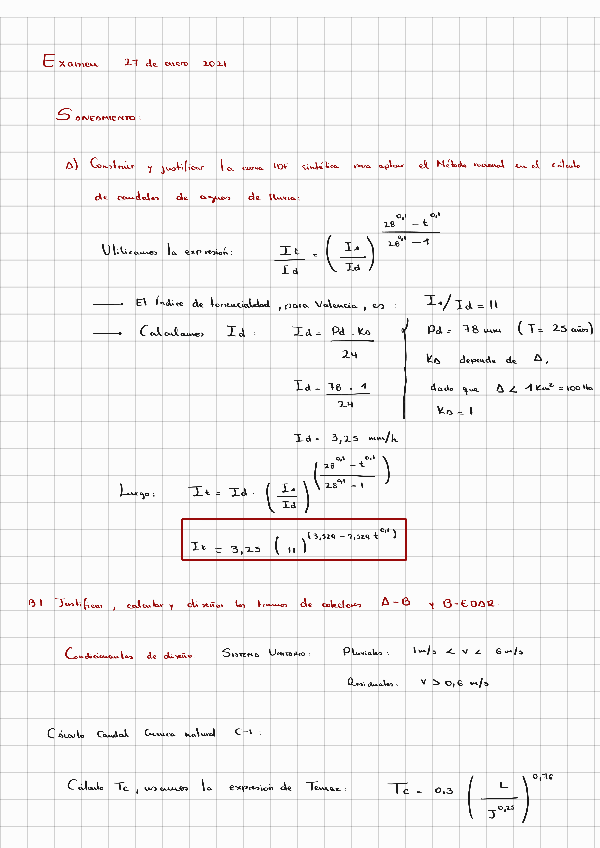 Examen 27 de enero 2021
SANEAMIENTO:
A) Construir y justificar la curva IDF sintética para aplicar el Método racional en el cálculo
de caudales de aguas de lluvia:
Utilizamos la expresión: It/Id = (I1/Id)^((28^0,1 - t^0,1)/(28^0,1 - 1))
→ El Índice de torrencialidad, para Valencia, es: I1/Id = 11
→ Calculamos Id: Id = Pd · KA / 24
Pd = 78 mm (T = 25 años)
KA depende de A,
Id = 78 · 1 / 24
dado que A < 1 Km² = 100 Ha
KA = 1
Id = 3,25 mm/h
Luego: It = Id · (I1/Id)^((28^0,1 - t^0,1)/(28^0,1 - 1))
It = 3,25 (11)^(3,529 - 2,529 t^0,1)
B) Justificar, calcular y diseñar los tramos de colectores A-B y B-EDAR.
Condicionantes de diseño SISTEMA UNITARIO: Pluviales: 1m/s < v < 6 m/s
Residuales: v > 0,6 m/s
Cálculo Caudal Cuenca natural C-1:
Cálculo Tc, usamos la expresión de Temez: Tc = 0.3 (L / J^0,25)^0,76